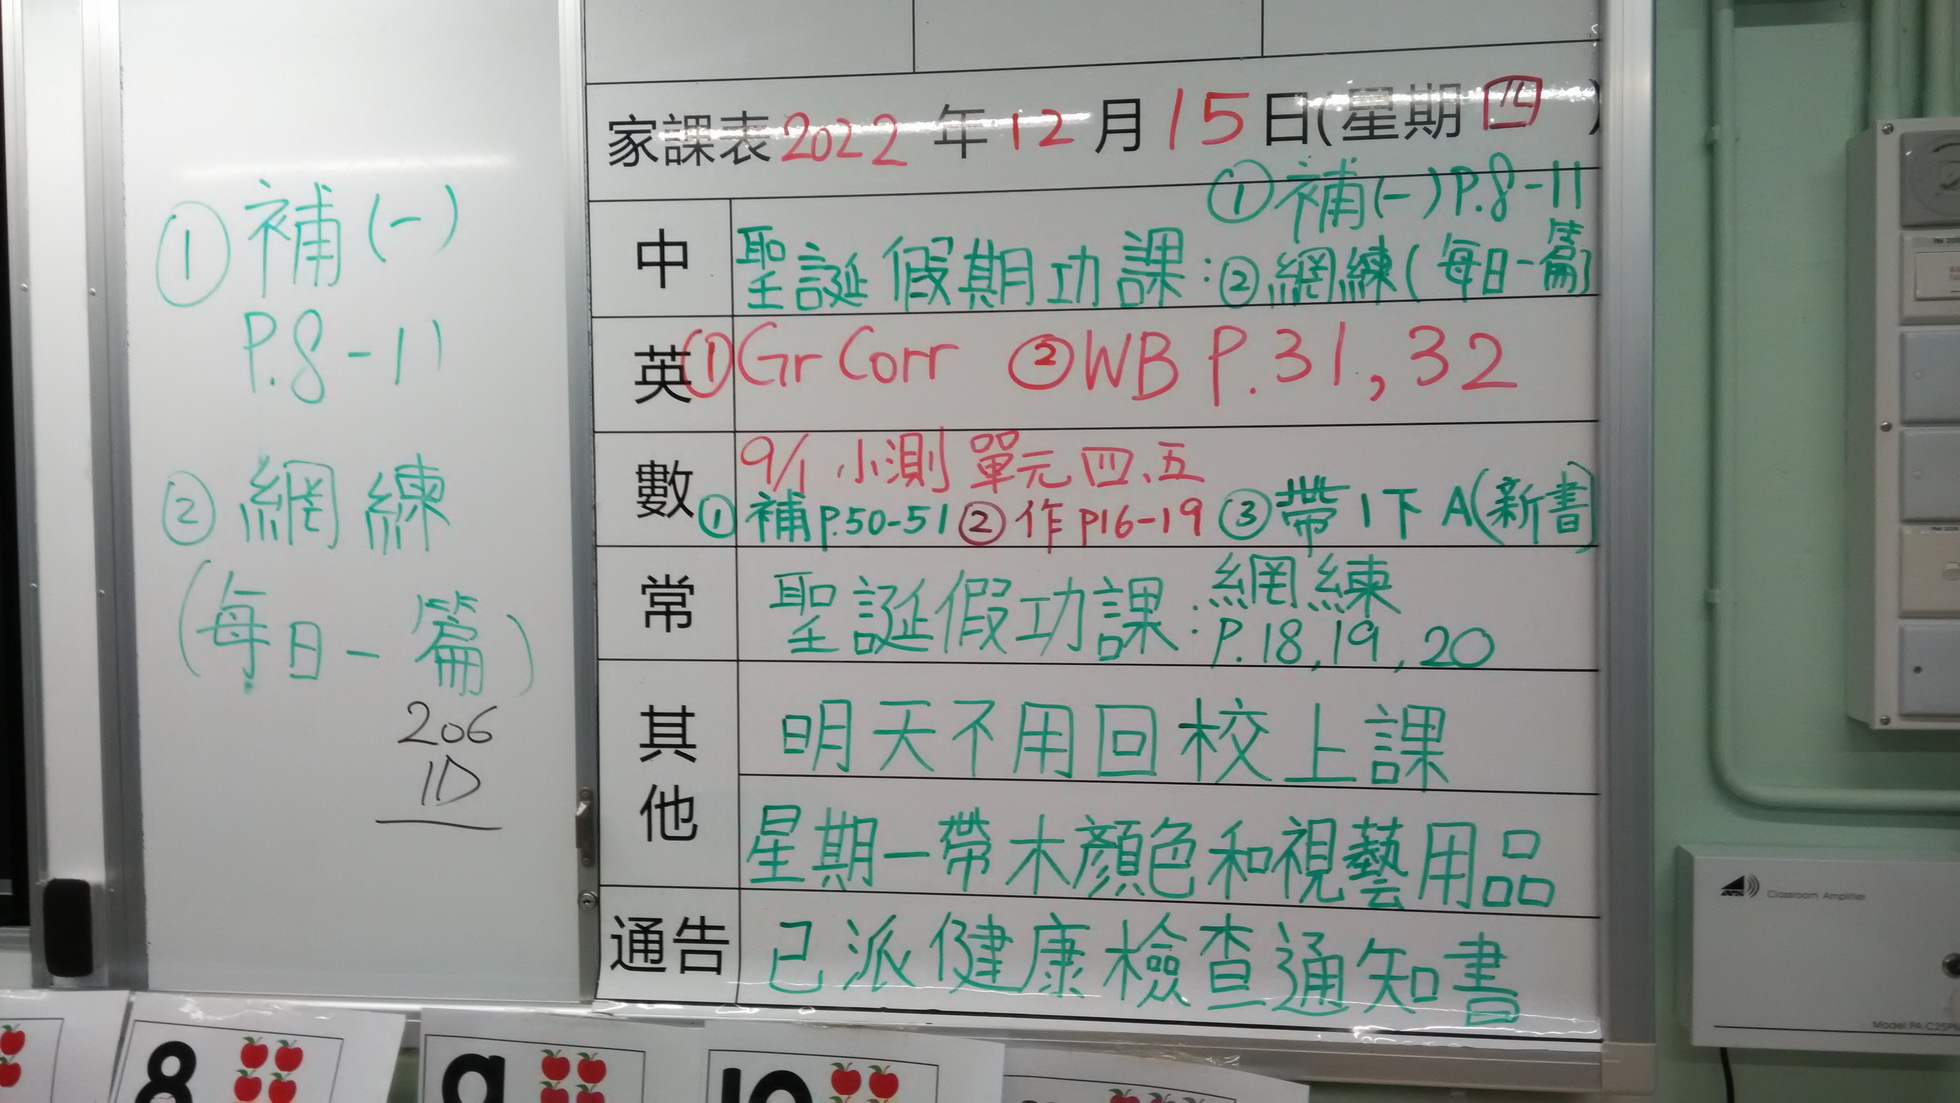 ①補(一)
P.8-11
②網練
(每日一篇)
206
1D
家課表2022年12月15日(星期四)
中
①補(一)P.8-11
聖誕假期功課:②網練(每日一篇)
英①Gr Corr ②WB P.31,32
數
9/1 小測 單元四、五
①補p.50-51②作p16-19 ③帶1下A(新書)
常
聖誕假功課:網練
P.18,19,20
其他
明天不用回校上課
星期一帶木顏色和視藝用品
通告 已派健康檢查通知書
8
9
10
Classroom Amplifier